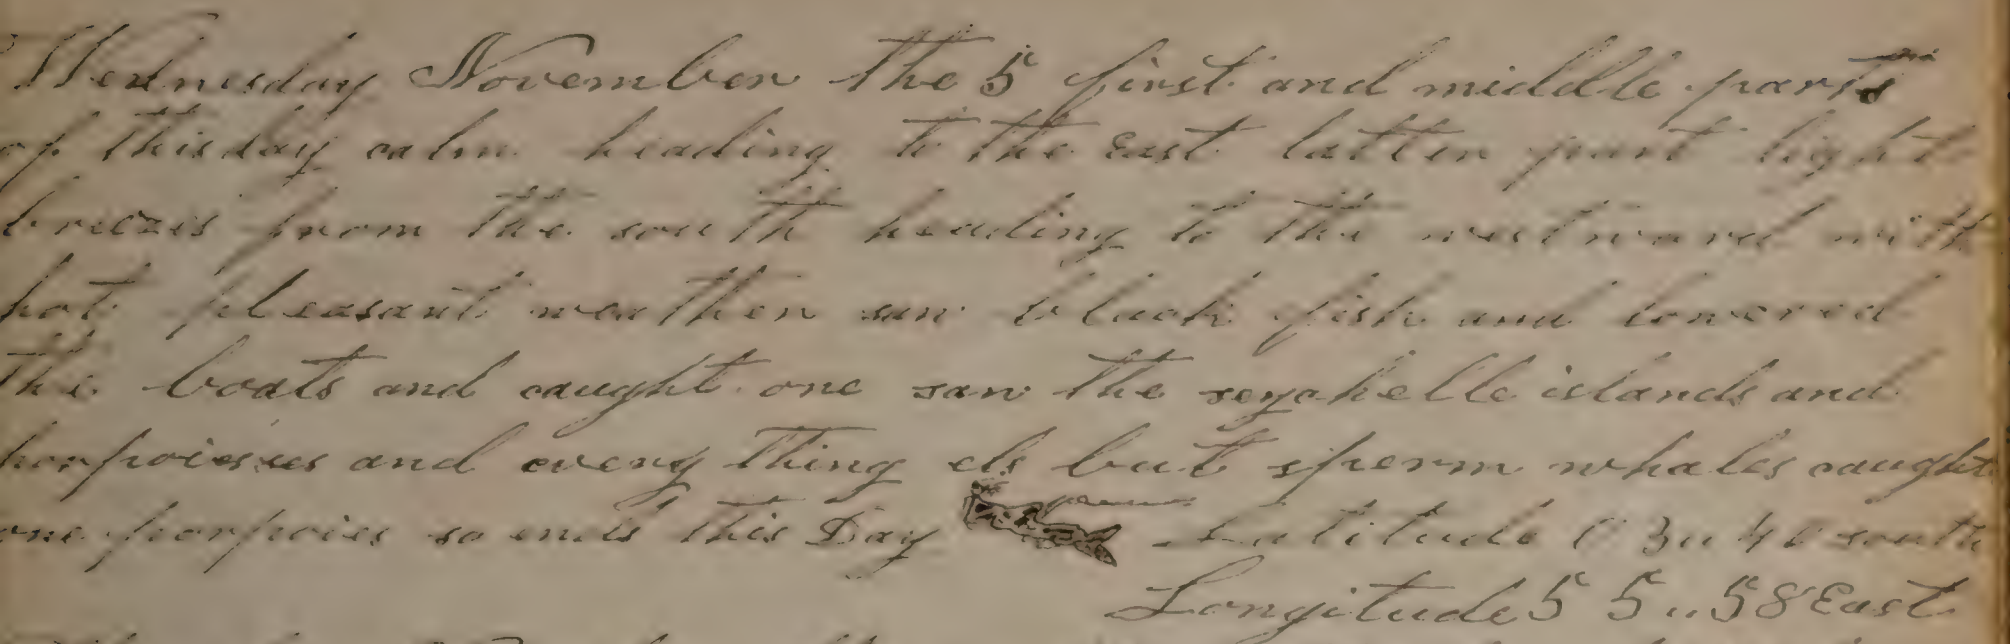 Wednesday November the 5 first and middle parts
of this day calm heading to the East latter part light
breezis from the south heading to the westward with
hot pleasant weather saw black fish and lowered
the boats and caught one saw the seychelle islands and
porpoisses and every thing els but sperm whales caught
one porpoies so ends this Day Latitude 03 " 40 south
Longitude 55 " 58 East